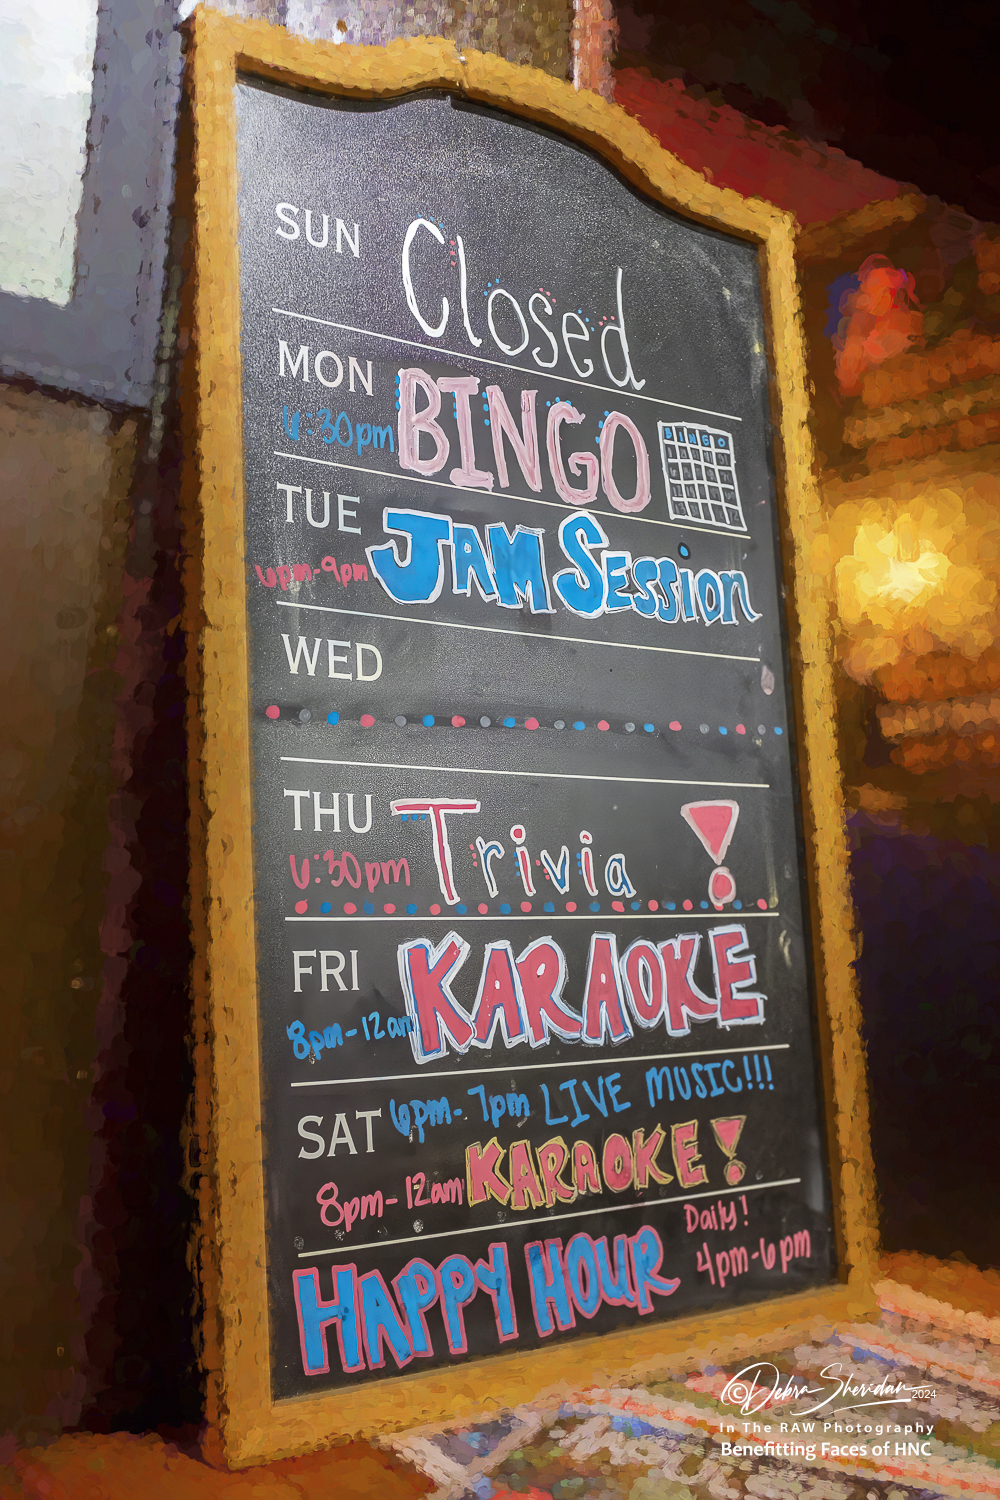 SUN Closed
MON BINGO
6:30pm
BINGO
TUE JAM SESSION
6pm-9pm
WED
THU Trivia !
6:30pm
FRI KARAOKE
8pm-12am
SAT 6pm-7pm LIVE MUSIC!!!
8pm-12am KARAOKE!
HAPPY HOUR Daily!
4pm-6pm
©Debra Sheridan 2024
In The RAW Photography
Benefitting Faces of HNC